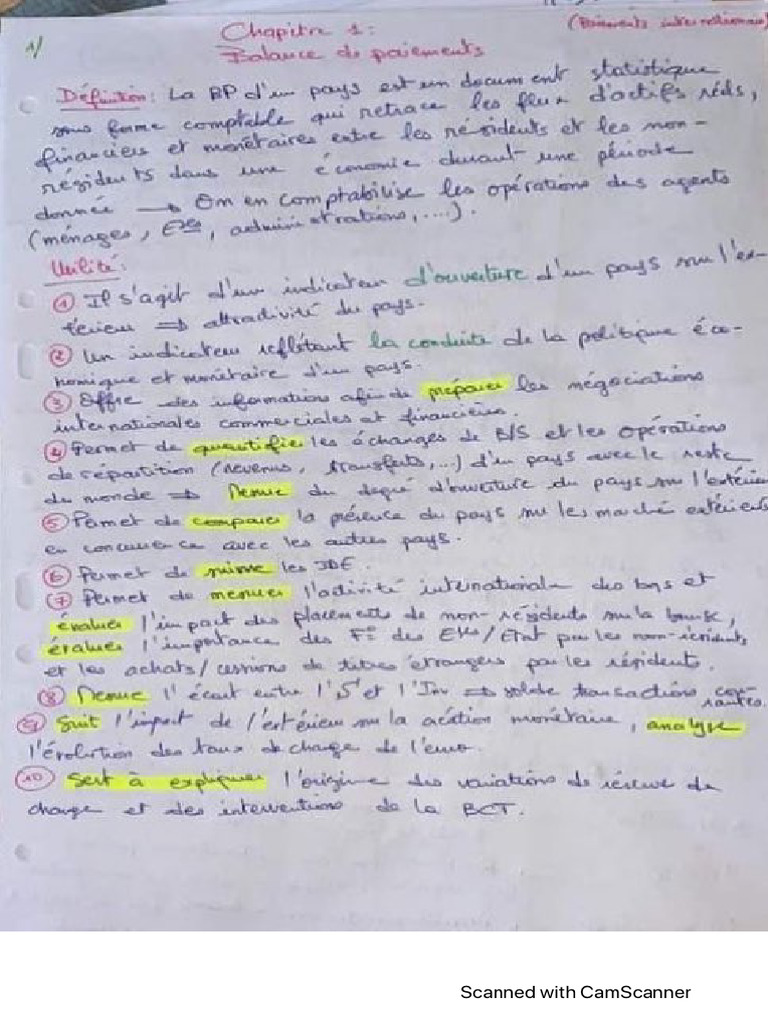 1/
Chapitre 1:
(Paiements internationaux)
Balance de paiements
Définition: La BP d'un pays est un document statistique
sous forme comptable qui retrace les flux d'actifs réels,
financiers et monétaires entre les résidents et les non-
résidents dans une économie durant une période
donnée → On en comptabilise les opérations des agents
(ménages, Eses, administrations, ....).
Utilité:
① Il s'agit d'un indicateur d'ouverture d'un pays sur l'ex-
térieur ⇒ attractivité du pays.
② Un indicateur reflétant la conduite de la politique éco-
nomique et monétaire d'un pays.
③ Offre des informations afin de préparer les négociations
internationales commerciales et financières.
④ Permet de quantifier les échanges de B/S et les opérations
de répartition (revenus, transferts,...) d'un pays avec le reste
du monde ⇒ Mesure du degré d'ouverture du pays sur l'extérieur
⑤ Permet de comparer la présence du pays sur les marché extérieurs
en concurrence avec les autres pays.
⑥ Permet de suivre les IDE.
⑦ Permet de mesurer l'activité internationale des bqs et
évaluer l'impact des placements de non-résidents sur la bourse,
évaluer l'importance des Ft des Eses/Etat par les non-résidents
et les achats/cessions de titres étrangers par les résidents.
⑧ Mesure l'écart entre l'St et l'Inv ⇒ solde transactions cou-
rantes.
⑨ Suit l'impact de l'extérieur sur la création monétaire, analyse
l'évolution des taux de change de l'euro.
⑩ Sert à expliquer l'origine des variations de réserve de
change et des interventions de la BCT.
Scanned with CamScanner